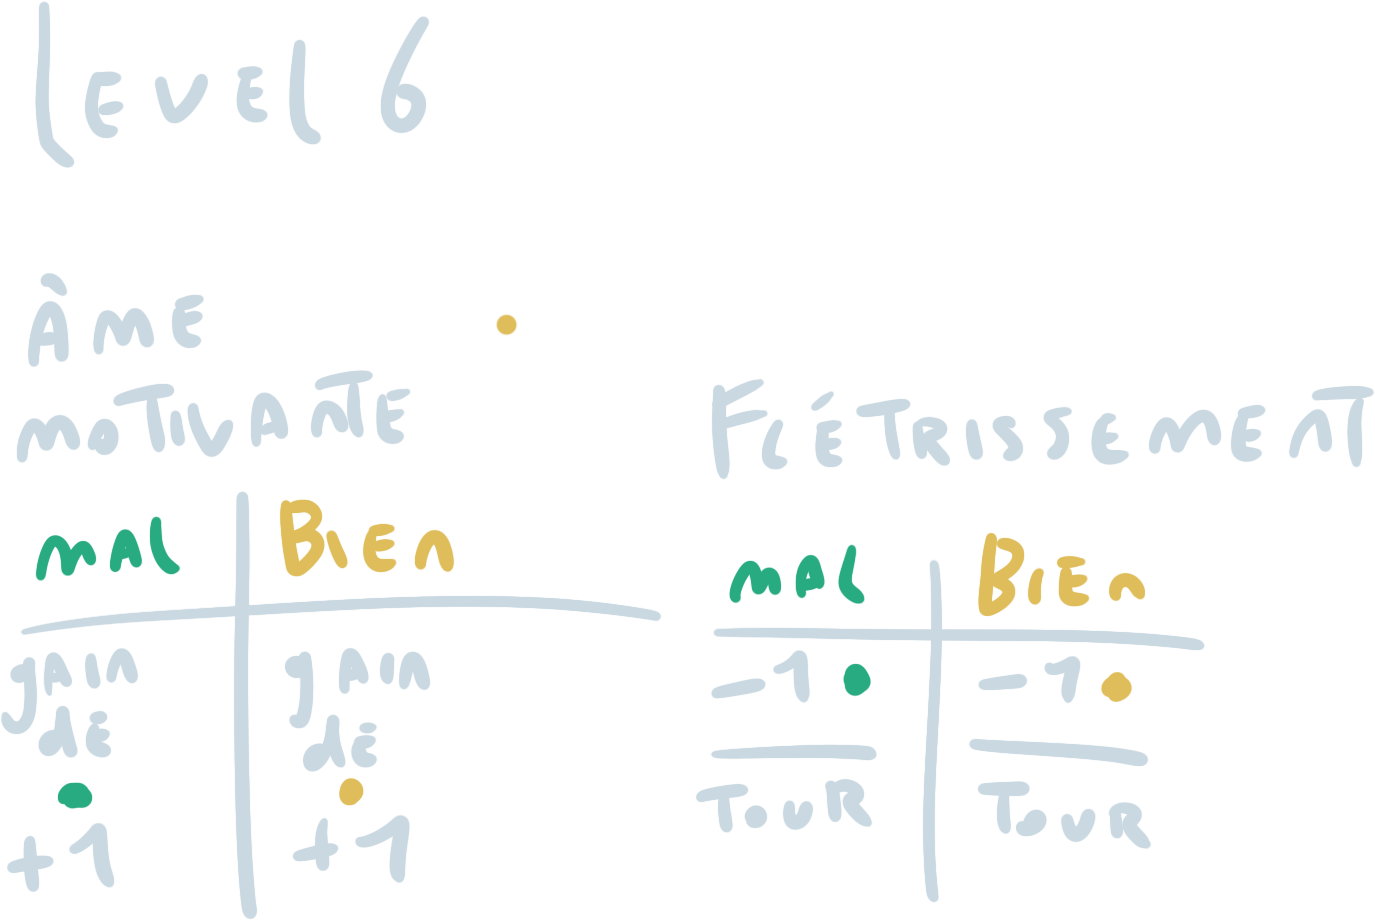 LEVEL 6
ÀME
MOTIVANTE
MAL BIEN
gAIN gAIN
dé dé
+1 +1
FLÉTRISSEMENT
MAL BIEN
-1 -1
TOUR TOUR